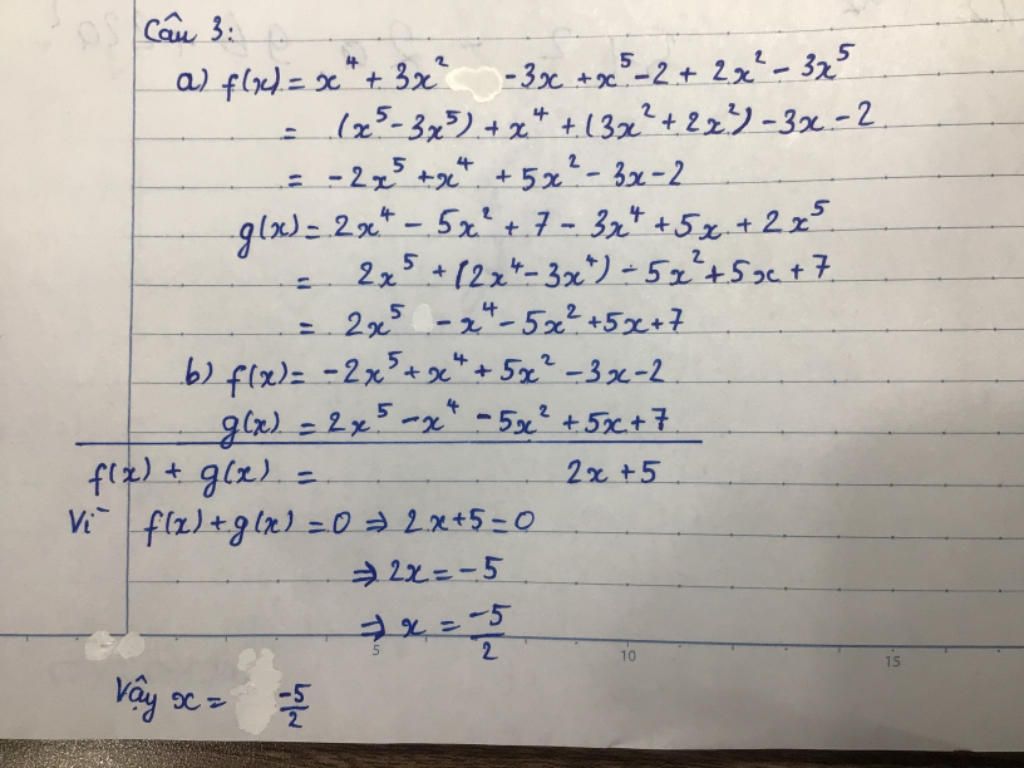 Câu 3:
a) f(x) = x⁴ + 3x² -3x + x⁵ - 2 + 2x² - 3x⁵
= (x⁵ - 3x⁵) + x⁴ + (3x² + 2x²) - 3x - 2
= -2x⁵ + x⁴ + 5x² - 3x - 2
g(x) = 2x⁴ - 5x² + 7 - 3x⁴ + 5x + 2x⁵
= 2x⁵ + (2x⁴ - 3x⁴) - 5x² + 5x + 7
= 2x⁵ - x⁴ - 5x² + 5x + 7
b) f(x) = -2x⁵ + x⁴ + 5x² - 3x - 2
g(x) = 2x⁵ - x⁴ - 5x² + 5x + 7
f(x) + g(x) = 2x + 5
Vì f(x) + g(x) = 0 ⇒ 2x + 5 = 0
⇒ 2x = -5
⇒ x = -5/2
5 10 15
Vậy x = -5/2